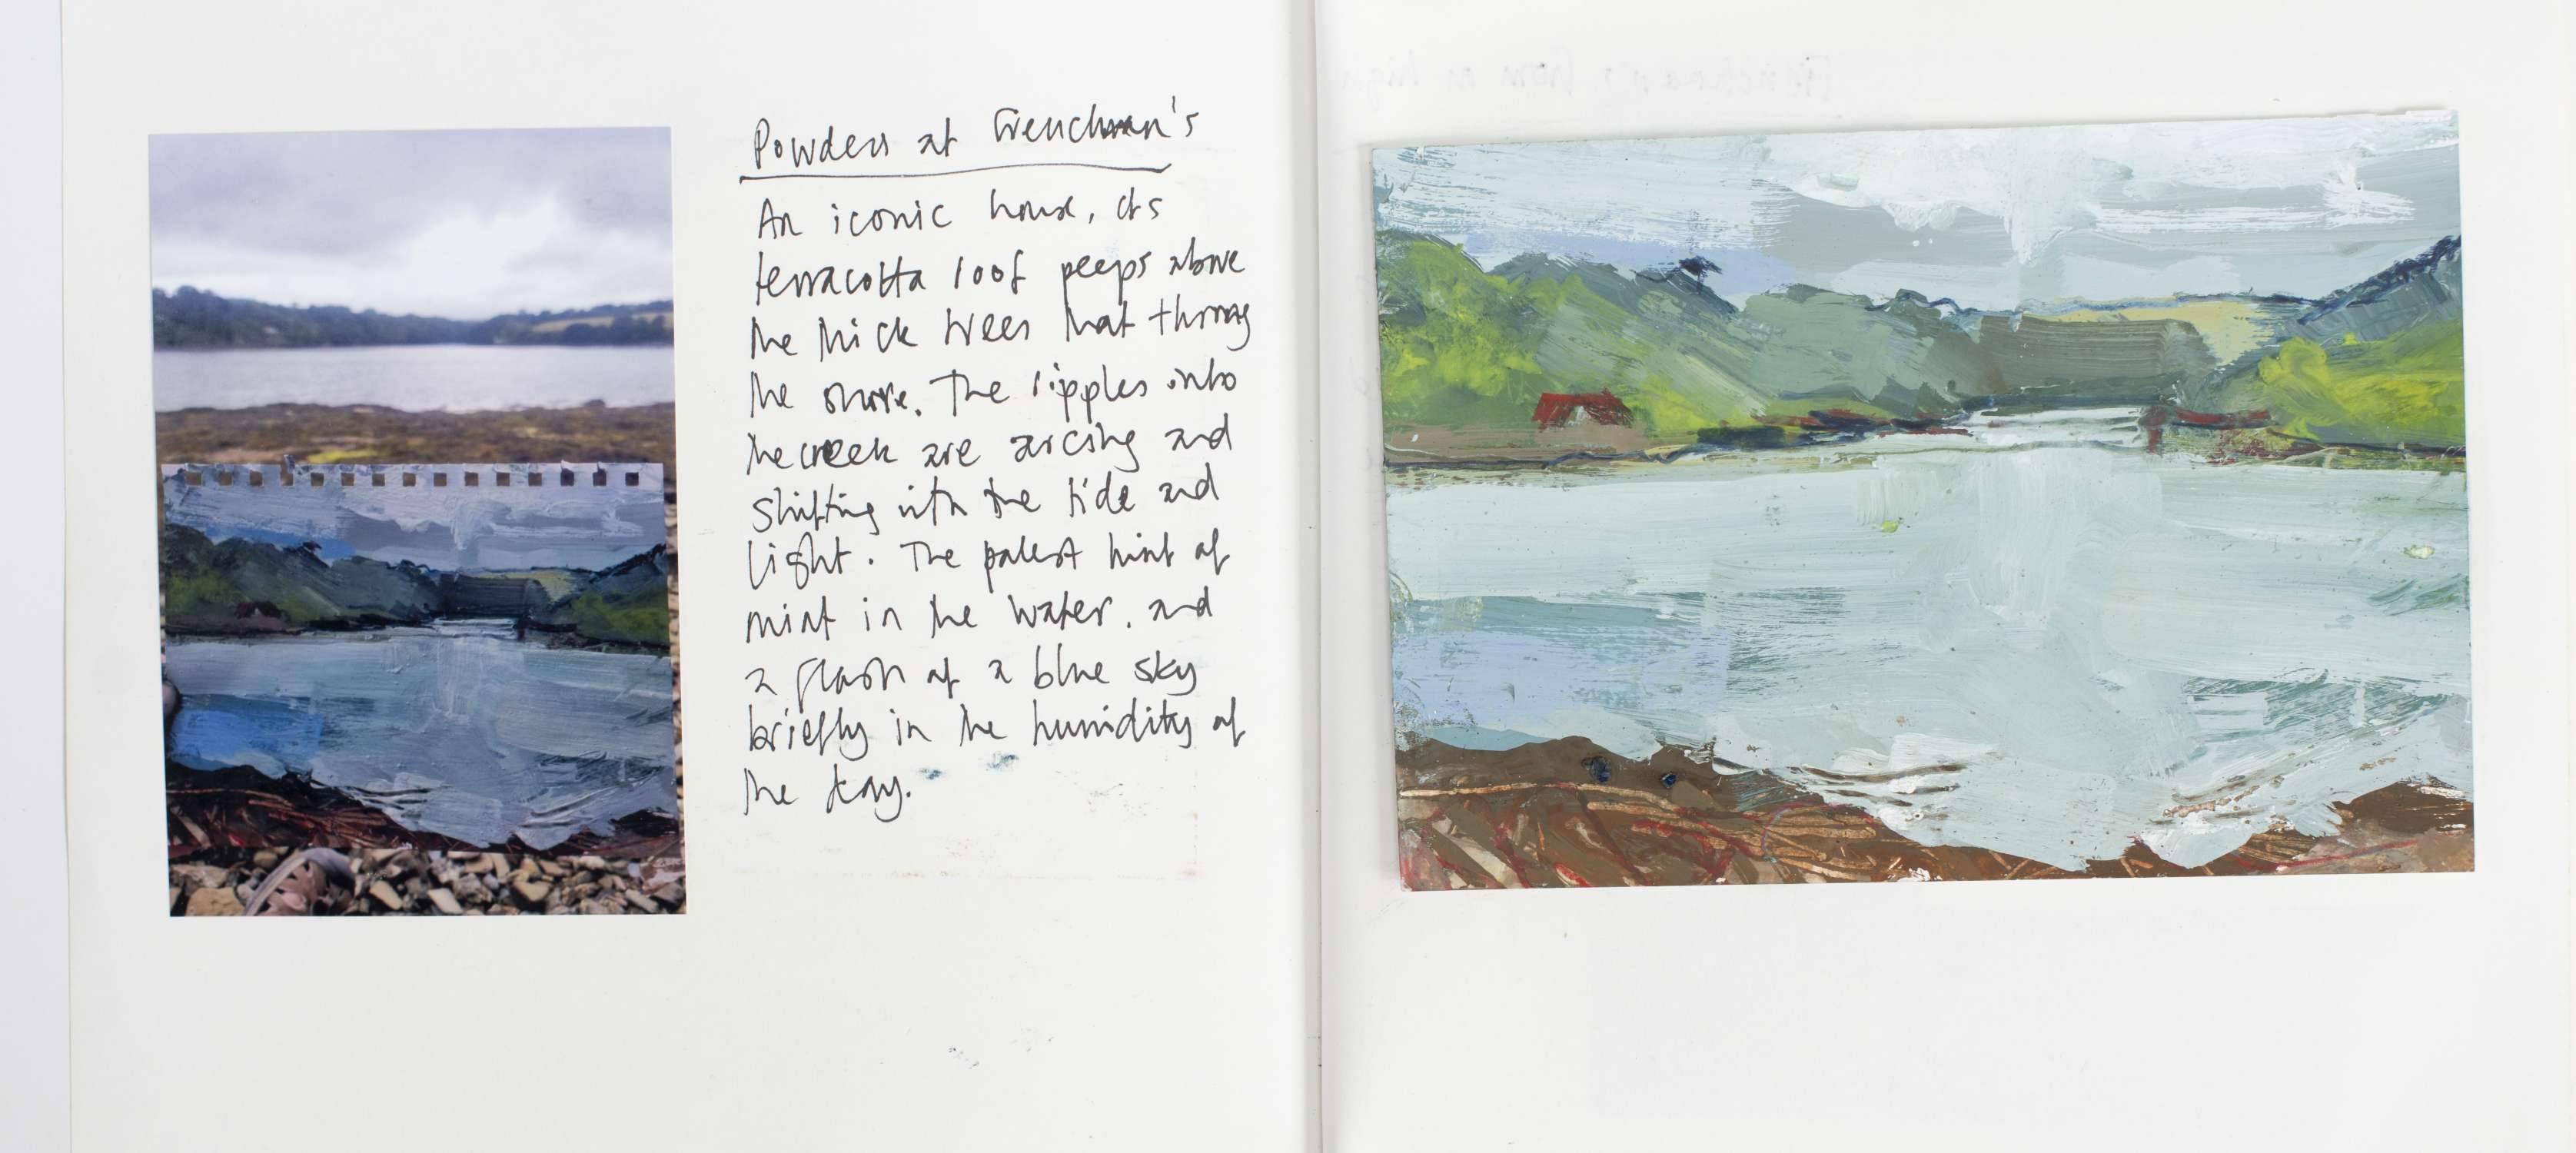 Powders at Frenchman's
An iconic house, its
terracotta roof peeps above
the thick trees that throng
the shore. The ripples into
the creek are arcing and
shifting with the tide and
light. The palest hint of
mint in the water, and
a flash of a blue sky
briefly in the humidity of
the day.